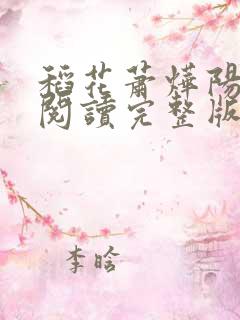 稻花蕭燁陽
閱讀完整版
李晗